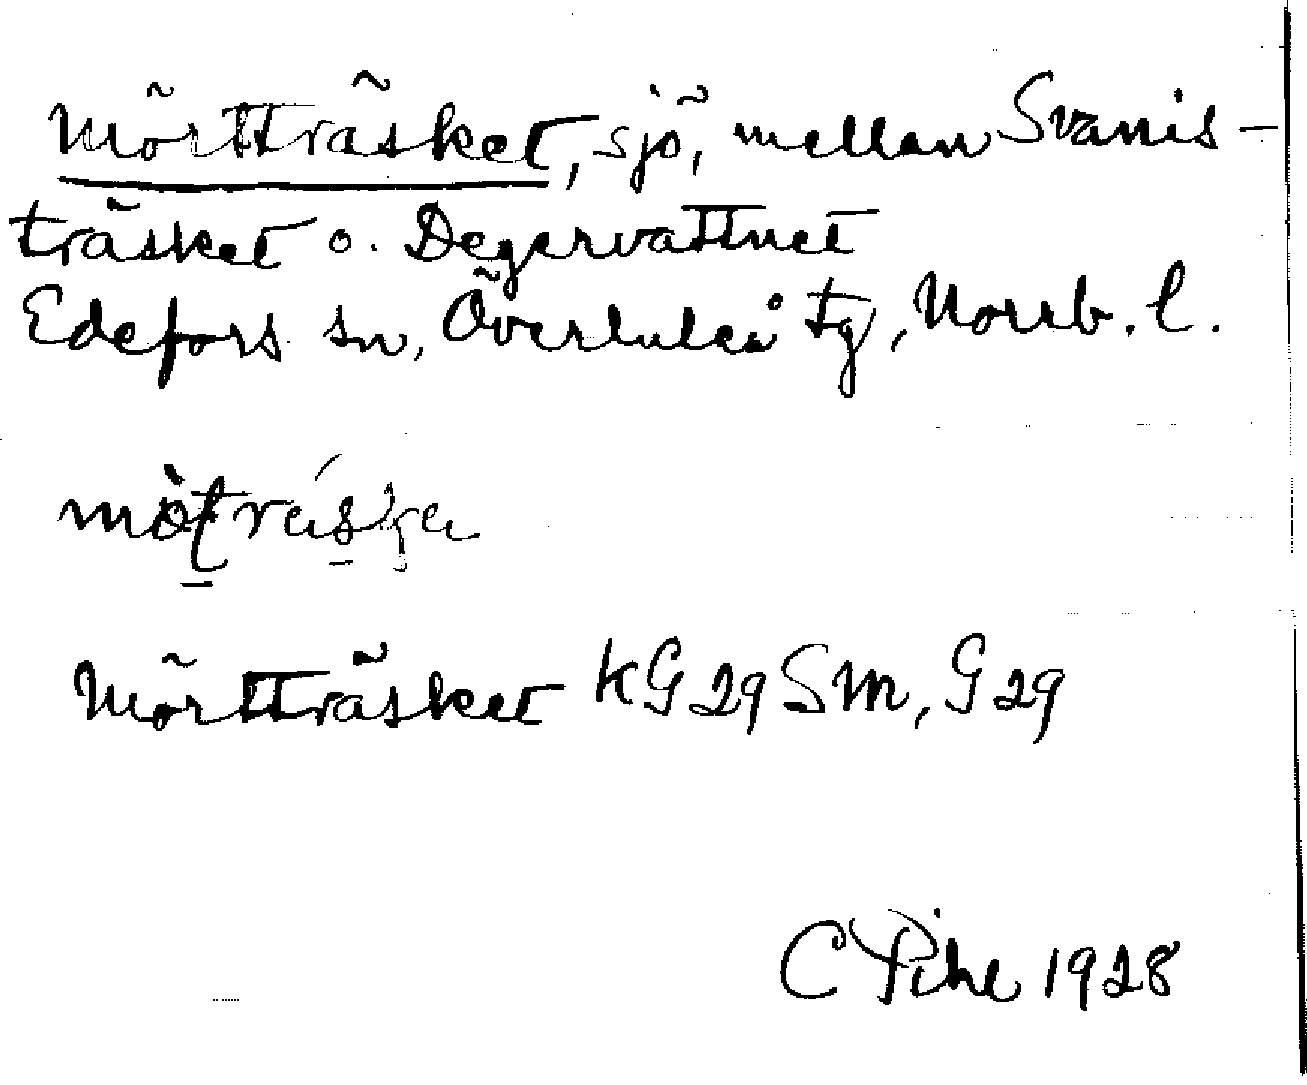 Mörtträsket, sjö, mellan Svanis-
träsket o. Degervattnet
Edefors sn, Överluleå tg, Norrb. l.
Mörtträsket KG 29 Sm, G 29
C Pihl 1928